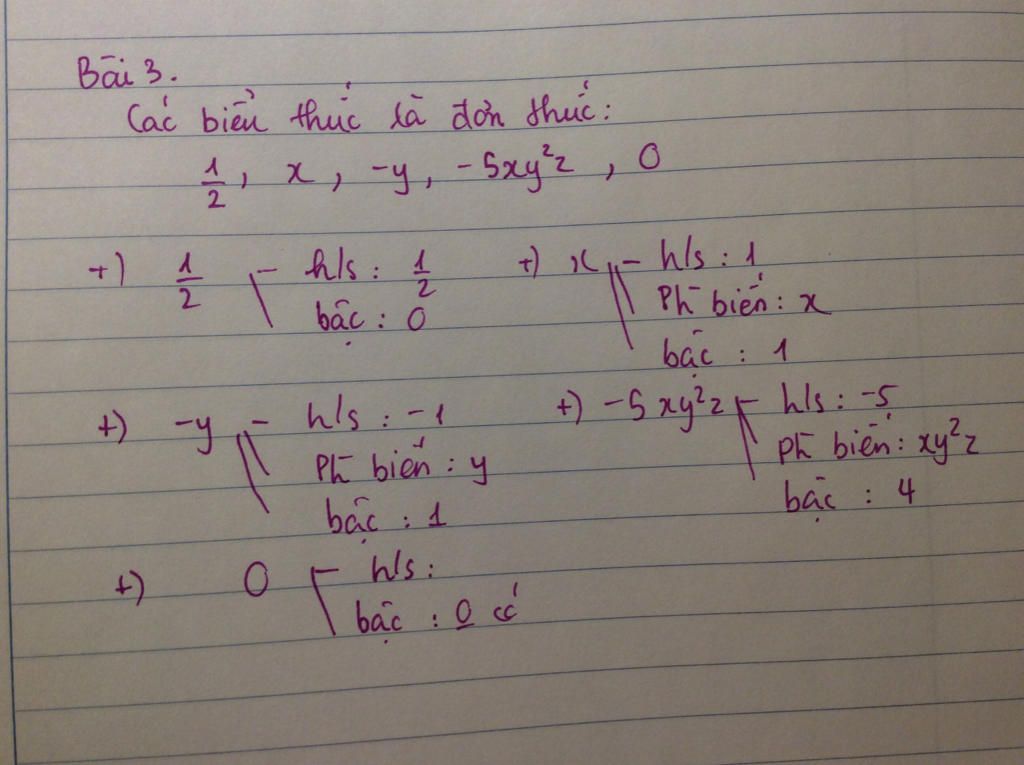 Bài 3.
Các biểu thức là đơn thức:
1/2, x, -y, -5xy²z, 0
+) 1/2 - h/s: 1/2 +) x - h/s: 1
bậc: 0 Ph biến: x
bậc: 1
+) -y - h/s: -1 +) -5xy²z - h/s: -5
Ph biến: y Ph biến: xy²z
bậc: 1 bậc: 4
+) 0 - h/s:
bậc: 0 có